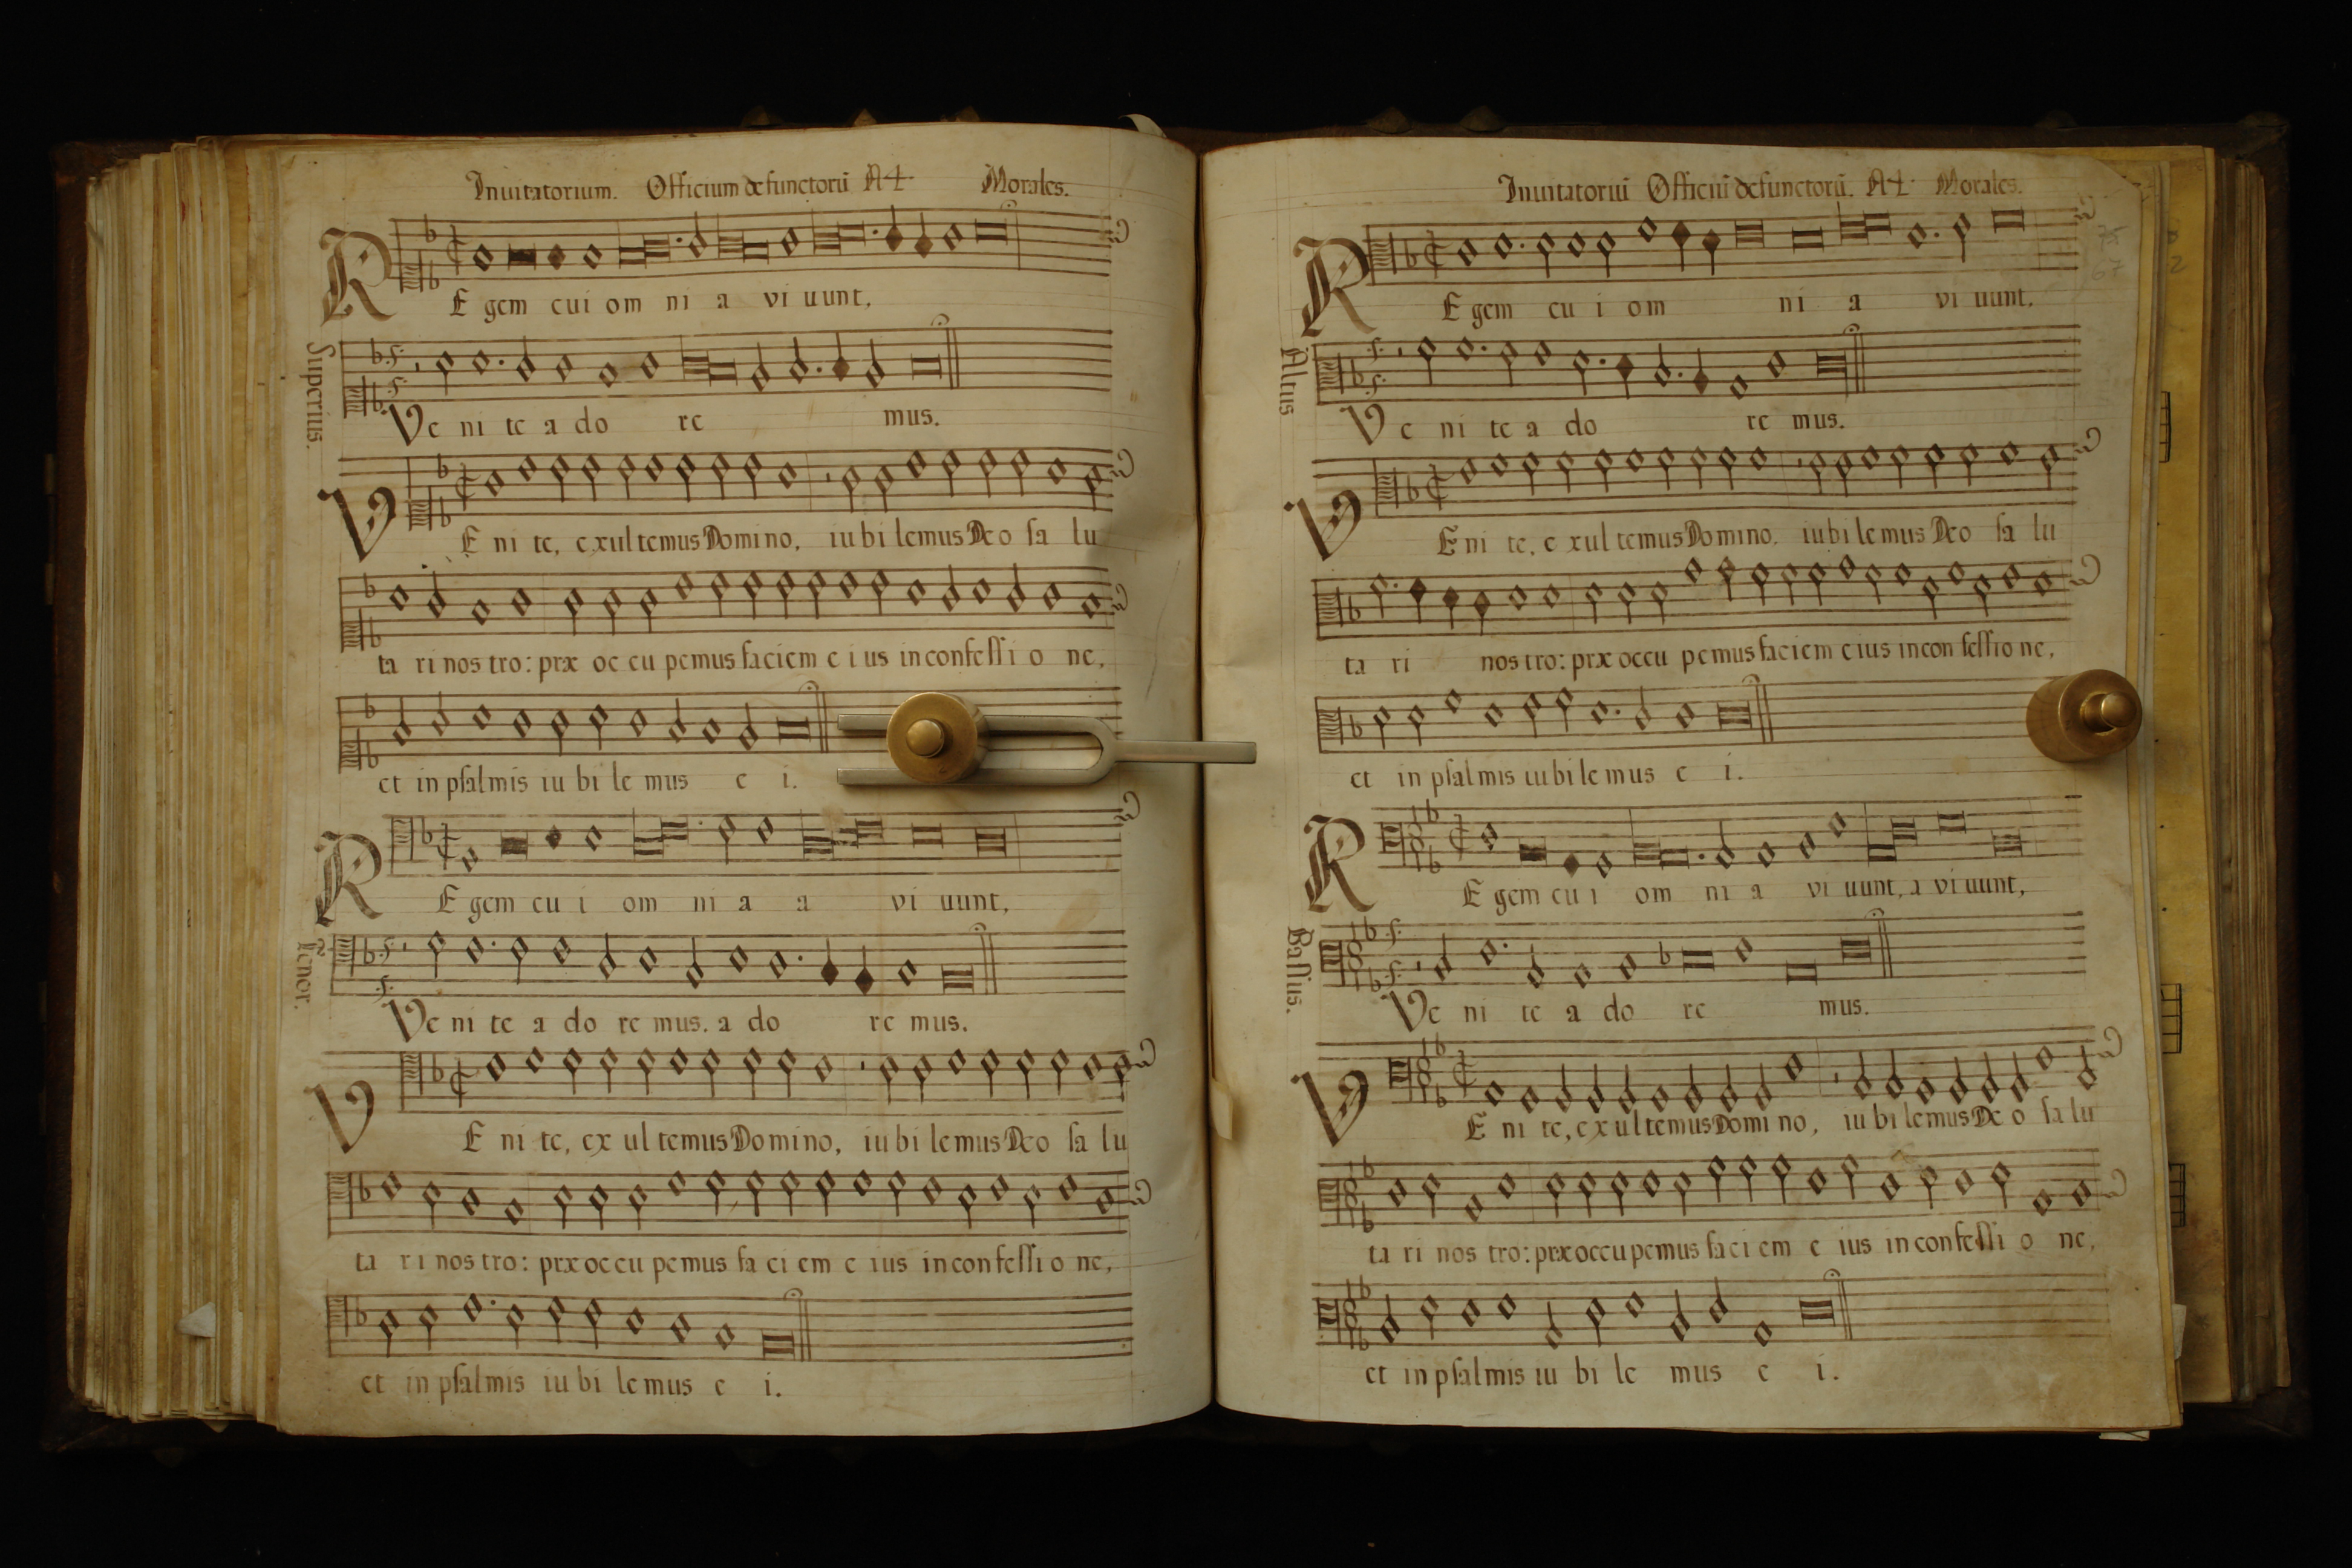 Inuitatorium. Officium defunctorũ A4. Morales.
REgem cui om ni a vi uunt,
Superius.
Ve ni te a do re mus.
VE ni te, exultemus Domino, iubilemus Deo sa lu
ta ri nos tro: præ oc cu pemus faciem e i us in confessi o ne,
et in psalmis iu bi le mus e i.
REgem cu i om ni a a vi uunt,
Tenor.
Ve ni te a do re mus. a do re mus.
VE ni te, ex ul temus Domino, iu bi lemus Deo sa lu
ta ri nos tro: præoccu pemus fa ci em e ius in confessi o ne,
et in psalmis iu bi lemus e i.
Inuitatoriũ Officiũ defunctorũ. A4. Morales.
REgem cu i om ni a vi uunt.
Altus
Ve ni te a do re mus.
VE ni te, e xul temus Domino, iubi lemus Deo sa lu
ta ri nos tro: præoccu pemus faciem eius in con fessio ne,
et in psalmis iubilemus e i.
REgem cu i om ni a vi uunt, a vi uunt,
Bassus.
Ve ni te a do re mus.
VE ni te, exultemus Domi no, iu bi lemus De o sa lu
ta ri nos tro: præoccupemus faci em e ius in confessi o ne,
et in psalmis iu bi le mus e i.